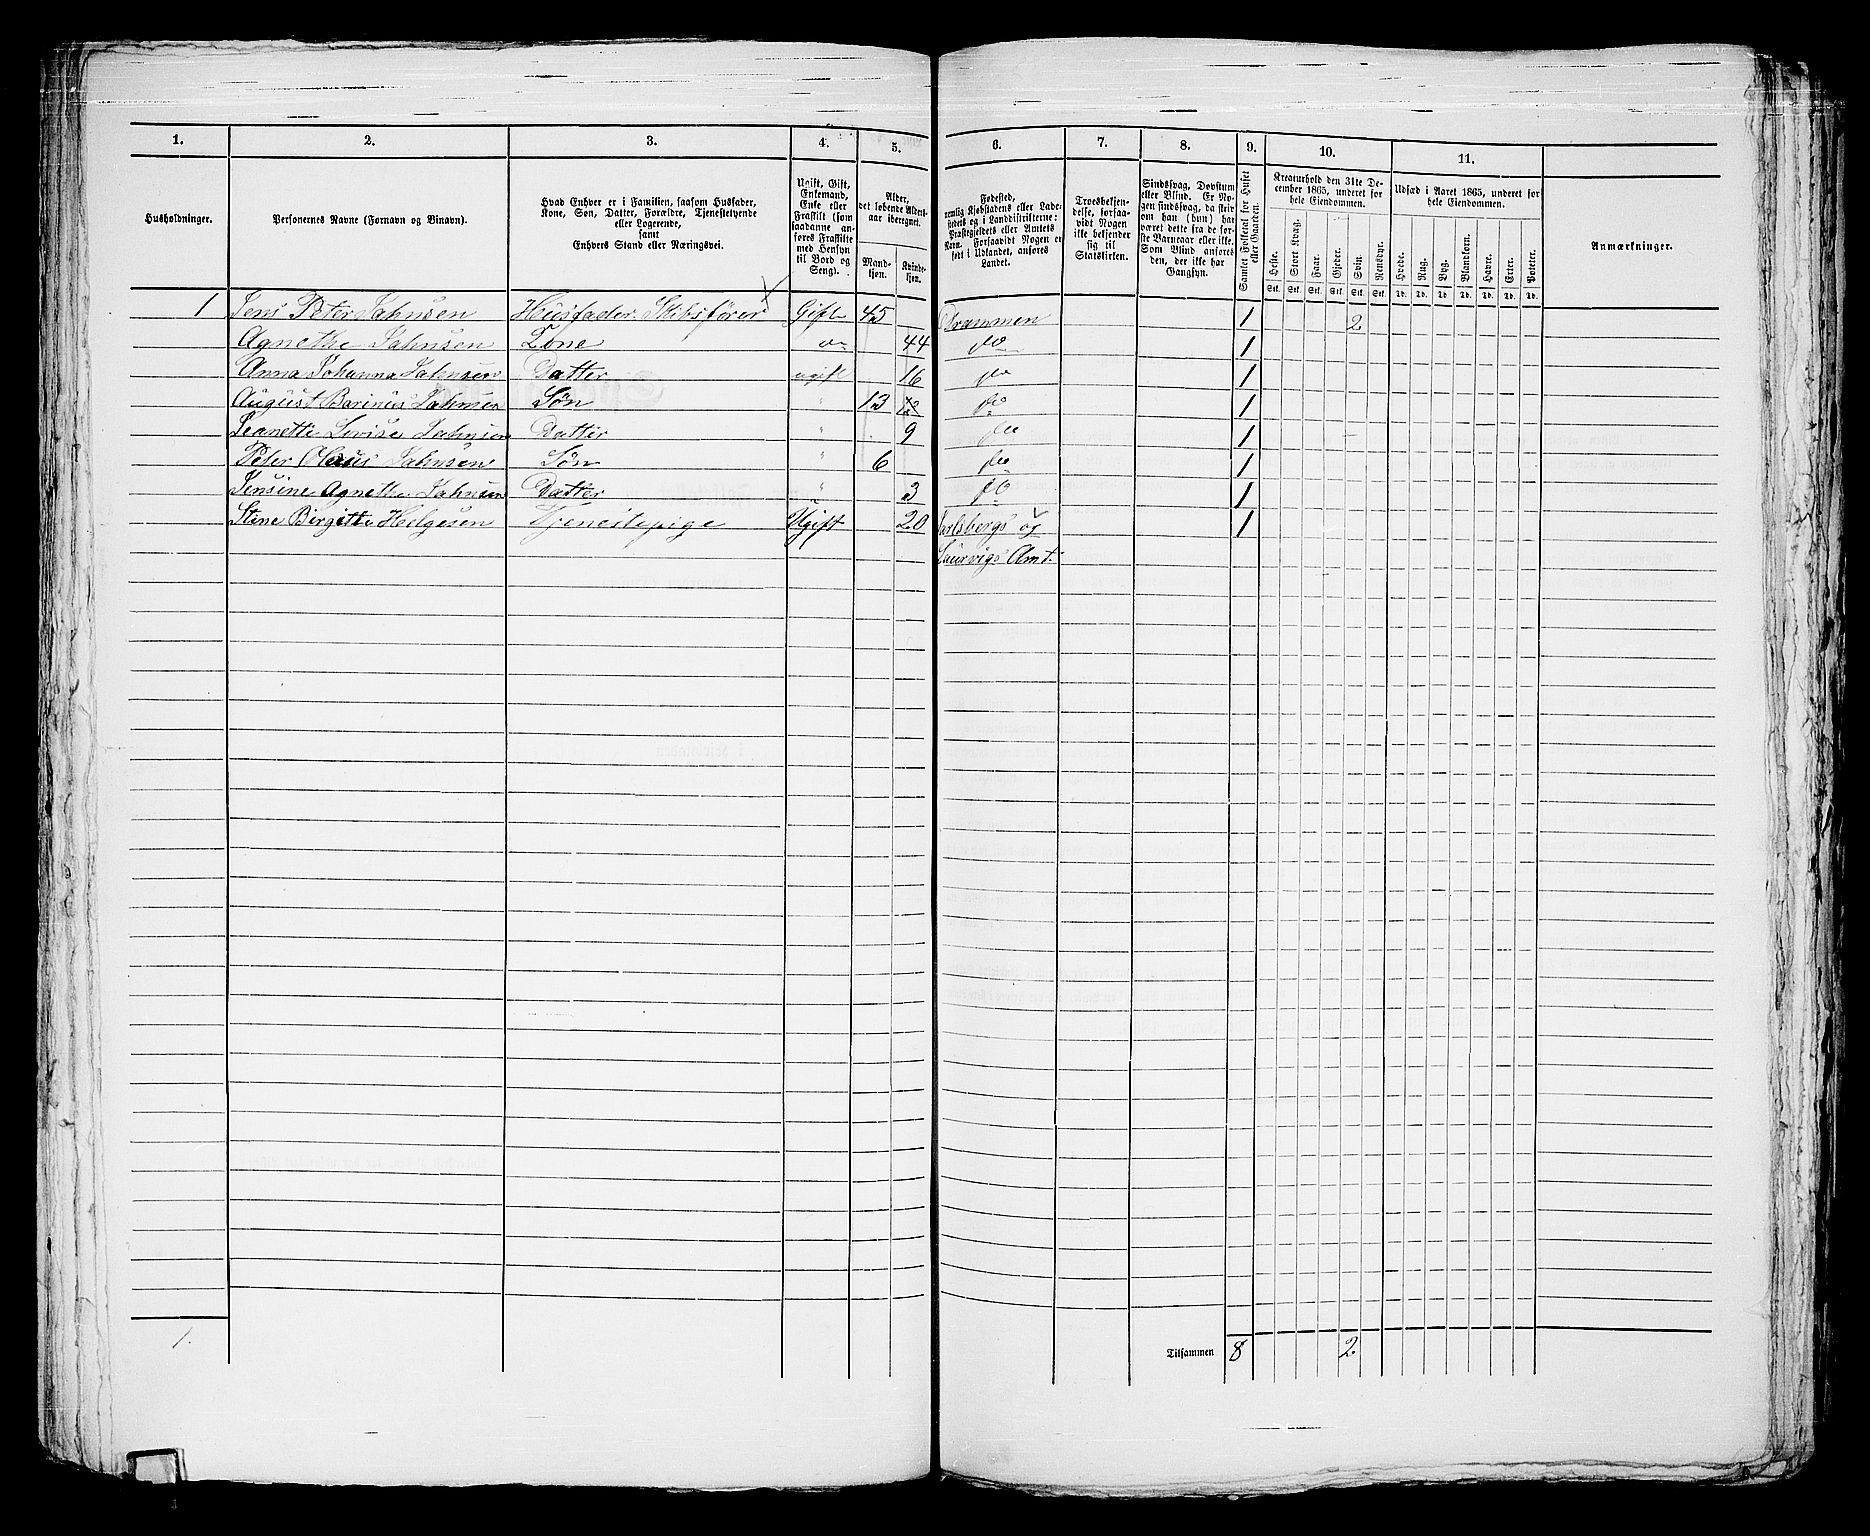 1. 2. 3. 4. 5. 6. 7. 8. 9. 10. 11.
Husholdninger.
Personernes Navne (Fornavn og Binavn).
Hvad Enhver er i Familien, saasom Husfader,
Kone, Søn, Datter, Forældre, Tjenestetyende
eller Logerende,
samt
Enhvers Stand eller Næringsvei.
Ugift, Gift,
Enkemand,
Enke eller
Fraskilt (som
saadanne an-
føres Fraskilte
med Hensyn
til Bord og
Seng).
Alder,
det løbende Alders-
aar iberegnet.
Mand-
kjøn.
Kvinde-
kjøn.
Fødested,
nemlig Kjøbstadens eller Lade-
stedets og i Landdistrikterne:
Præstegjeldets eller Amtets
Navn. Forsaavidt Nogen er
født i Udlandet, anføres
Landet.
Troesbekjen-
delse, forsaa-
vidt Nogen
ikke bekjender
sig til
Statskirken.
Sindssvag, Døvstum
eller Blind. Er No-
gen sindssvag, da skri-
om han (hun) har
været dette fra de før-
ste Barneaar eller ikke.
Som Blind anføres
den, der ikke har
Gangsyn.
Samlet Folketal for Huset
eller Gaarden.
Kreaturhold den 31te De-
cember 1865, underet for
hele Eiendommen.
Heste. Stort Kvæg. Faar. Gjeder. Svin. Rensdyr.
Stk. Stk. Stk. Stk. Stk. Stk.
Udsæd i Aaret 1865, underet for
hele Eiendommen.
Hvede. Rug. Byg. Blandkorn. Havre. Erter. Poteter.
Td. Td. Td. Td. Td. Td. Td.
Anmærkninger.
1 Jens Peter Jahnsen Husfader. Skibsfører Gift 45 Drammen 1 2
Agnethe Jahnsen Kone do 44 do 1
Anna Johanna Jahnsen Datter ugift 16 do 1
August Barinus Jahnsen Søn " 13 do 1
Jeanette Lovise Jahnsen Datter " 9 do 1
Peter Olaus Jahnsen Søn " 6 do 1
Jensine Agnethe Jahnsen Datter " 3 do 1
Stine Birgitte Helgesen Tjenestepige Ugift 20 Jarlsbergs og 1
Laurvigs Amt.
1. Tilsammen 8 2